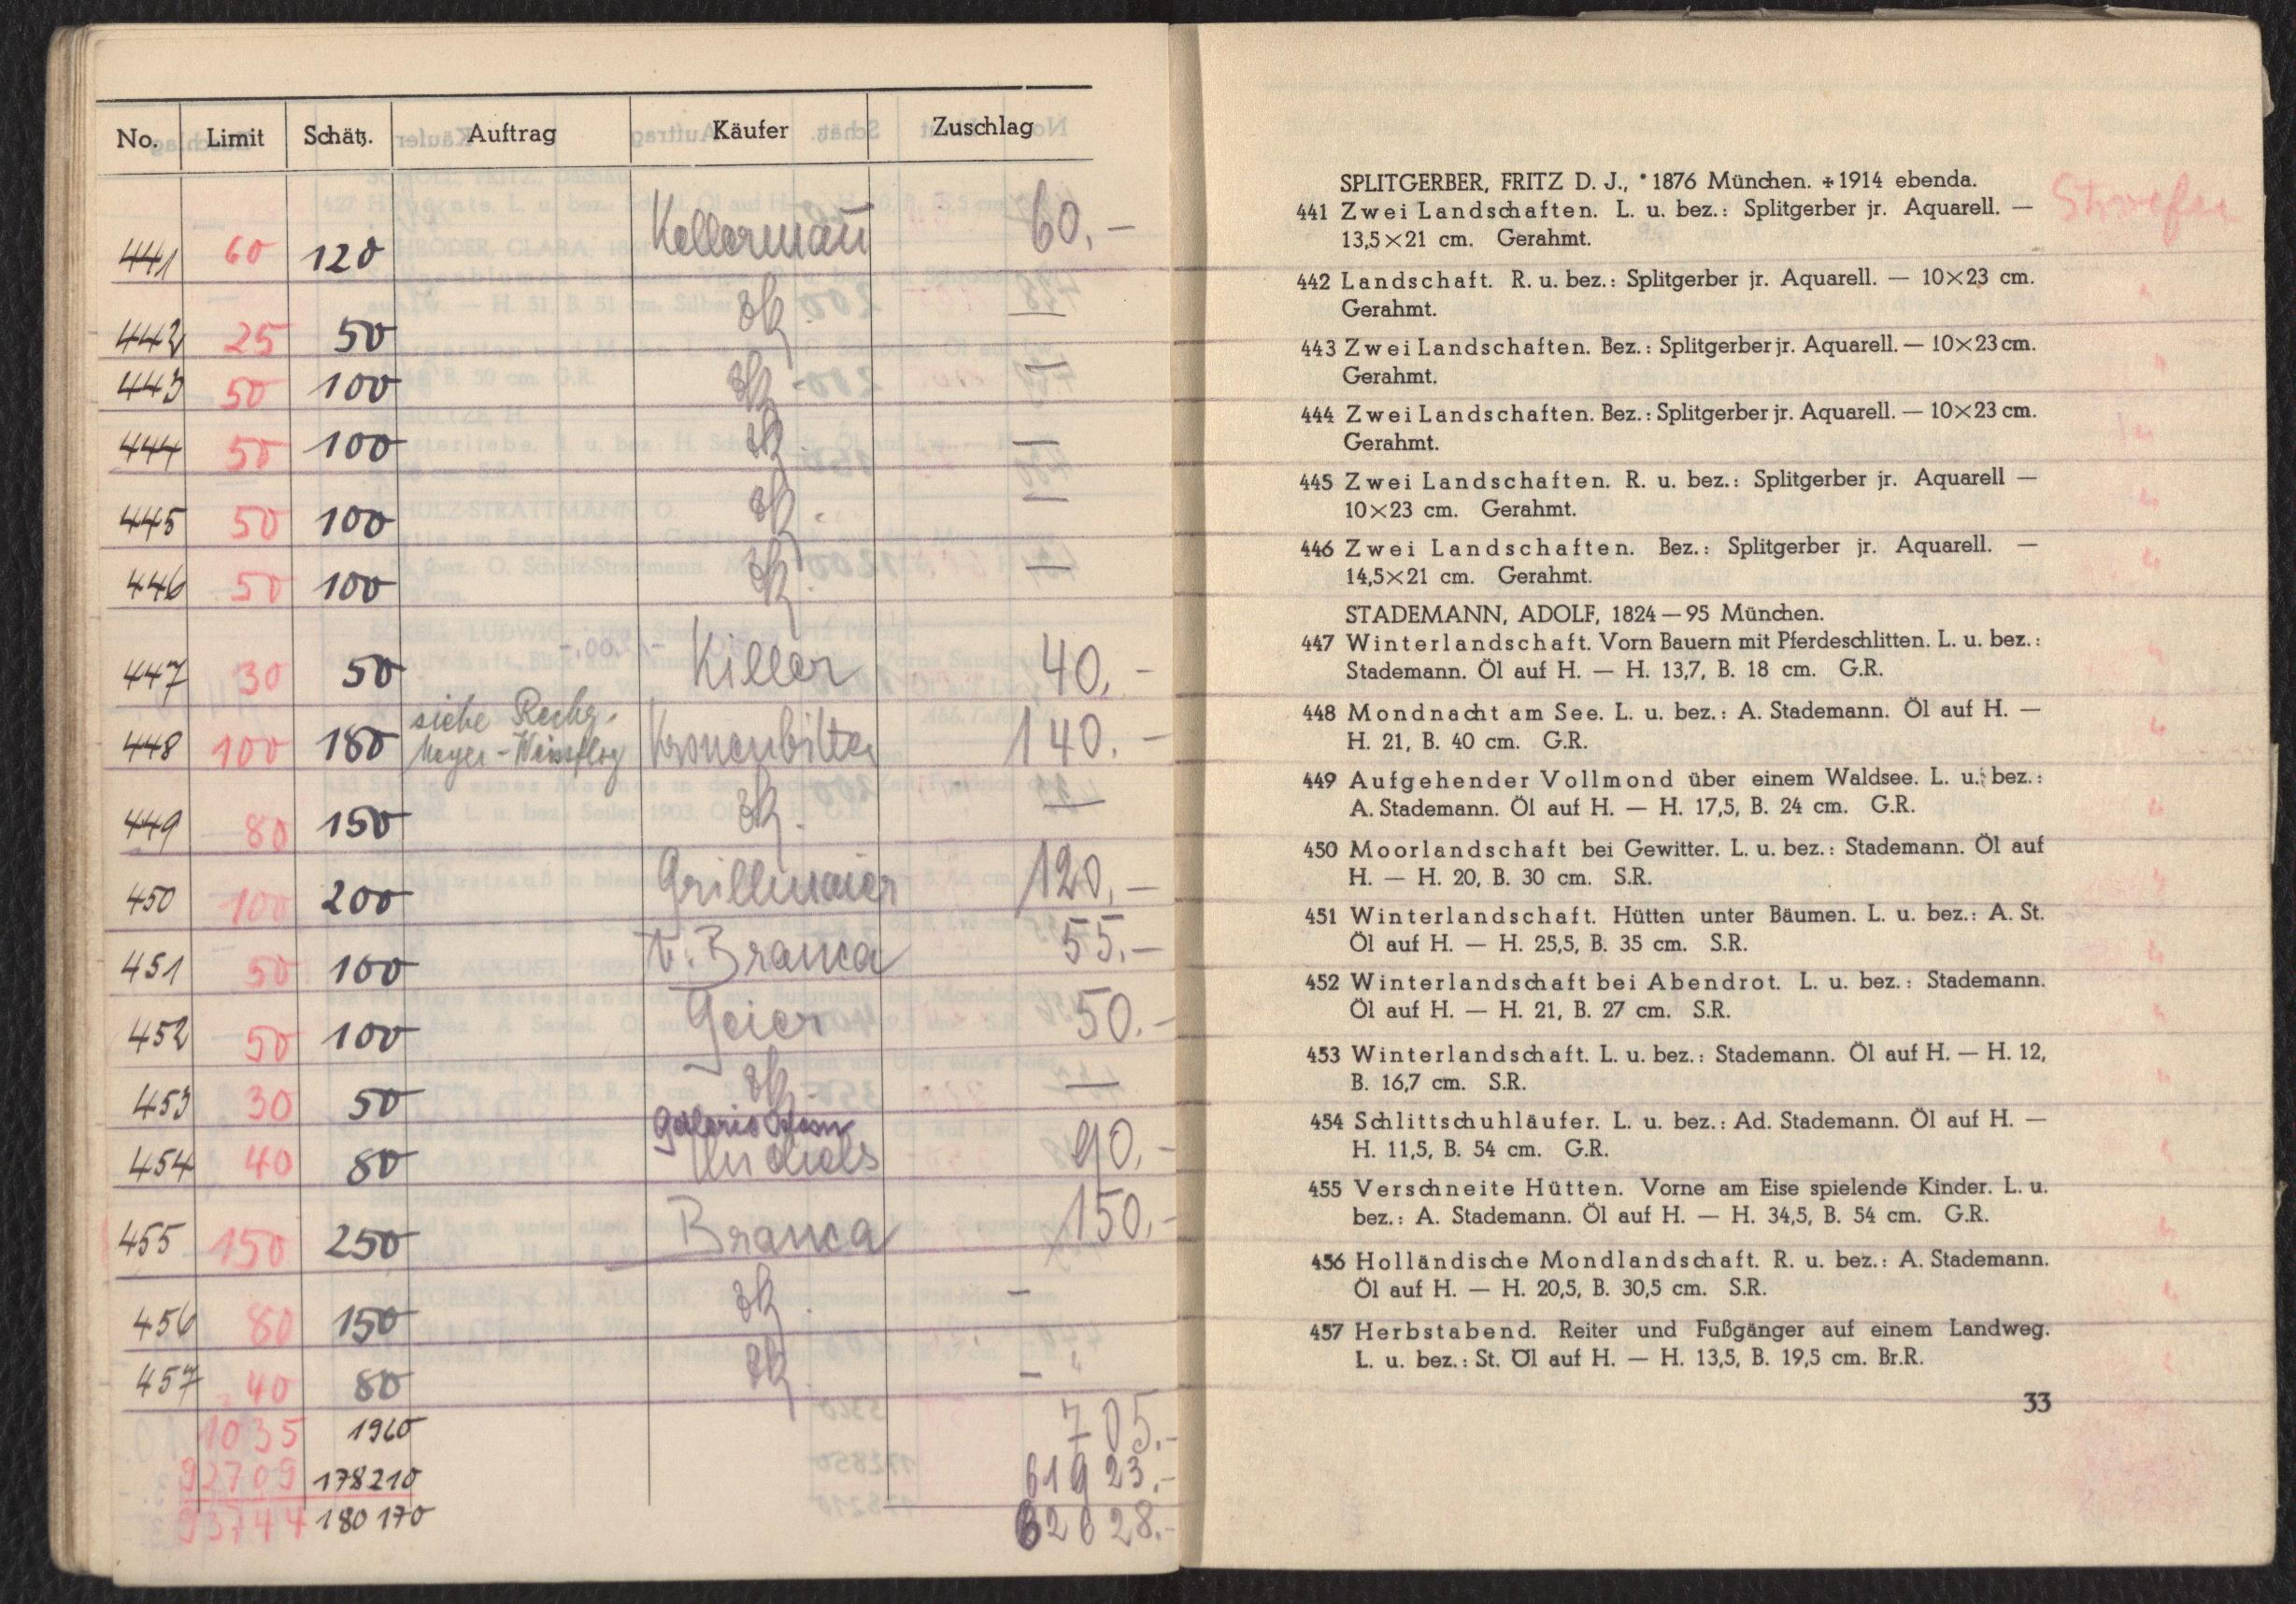 No. Limit Schätz. Auftrag Käufer Zuschlag
441 60 120 Kellermann 60,-
442 25 50 zk. —
443 50 100 zk. —
444 50 100 zk. —
445 50 100 zk. —
446 50 100 zk. —
447 30 50 Killer 40,-
siehe Rechg.
448 100 180 Meyer-Weissflog Kronenbitter 140.-
449 80 150 zk. —
450 100 200 Grillmaier 120,-
451 50 100 v. Branca 55,-
452 50 100 Geier 50.-
453 30 50 zk. —
Galerie
454 40 80 90,-
455 150 250 Branca 150,-
456 80 150 zk. —
457 40 80 zk. —
1035 1960 705.-
92709 178210 61923.-
93744 180170 62628.-
SPLITGERBER, FRITZ D. J., *1876 München. +1914 ebenda.
441 Zwei Landschaften. L. u. bez.: Splitgerber jr. Aquarell. —
13,5×21 cm. Gerahmt.
442 Landschaft. R. u. bez.: Splitgerber jr. Aquarell. — 10×23 cm.
Gerahmt.
443 Zwei Landschaften. Bez.: Splitgerber jr. Aquarell. — 10×23 cm.
Gerahmt.
444 Zwei Landschaften. Bez.: Splitgerber jr. Aquarell. — 10×23 cm.
Gerahmt.
445 Zwei Landschaften. R. u. bez.: Splitgerber jr. Aquarell —
10×23 cm. Gerahmt.
446 Zwei Landschaften. Bez.: Splitgerber jr. Aquarell. —
14,5×21 cm. Gerahmt.
STADEMANN, ADOLF, 1824—95 München.
447 Winterlandschaft. Vorn Bauern mit Pferdeschlitten. L. u. bez.:
Stademann. Öl auf H. — H. 13,7, B. 18 cm. G.R.
448 Mondnacht am See. L. u. bez.: A. Stademann. Öl auf H. —
H. 21, B. 40 cm. G.R.
449 Aufgehender Vollmond über einem Waldsee. L. u. bez.:
A. Stademann. Öl auf H. — H. 17,5, B. 24 cm. G.R.
450 Moorlandschaft bei Gewitter. L. u. bez.: Stademann. Öl auf
H. — H. 20, B. 30 cm. S.R.
451 Winterlandschaft. Hütten unter Bäumen. L. u. bez.: A. St.
Öl auf H. — H. 25,5, B. 35 cm. S.R.
452 Winterlandschaft bei Abendrot. L. u. bez.: Stademann.
Öl auf H. — H. 21, B. 27 cm. S.R.
453 Winterlandschaft. L. u. bez.: Stademann. Öl auf H. — H. 12,
B. 16,7 cm. S.R.
454 Schlittschuhläufer. L. u. bez.: Ad. Stademann. Öl auf H. —
H. 11,5, B. 54 cm. G.R.
455 Verschneite Hütten. Vorne am Eise spielende Kinder. L. u.
bez.: A. Stademann. Öl auf H. — H. 34,5, B. 54 cm. G.R.
456 Holländische Mondlandschaft. R. u. bez.: A. Stademann.
Öl auf H. — H. 20,5, B. 30,5 cm. S.R.
457 Herbstabend. Reiter und Fußgänger auf einem Landweg.
L. u. bez.: St. Öl auf H. — H. 13,5, B. 19,5 cm. Br.R.
33